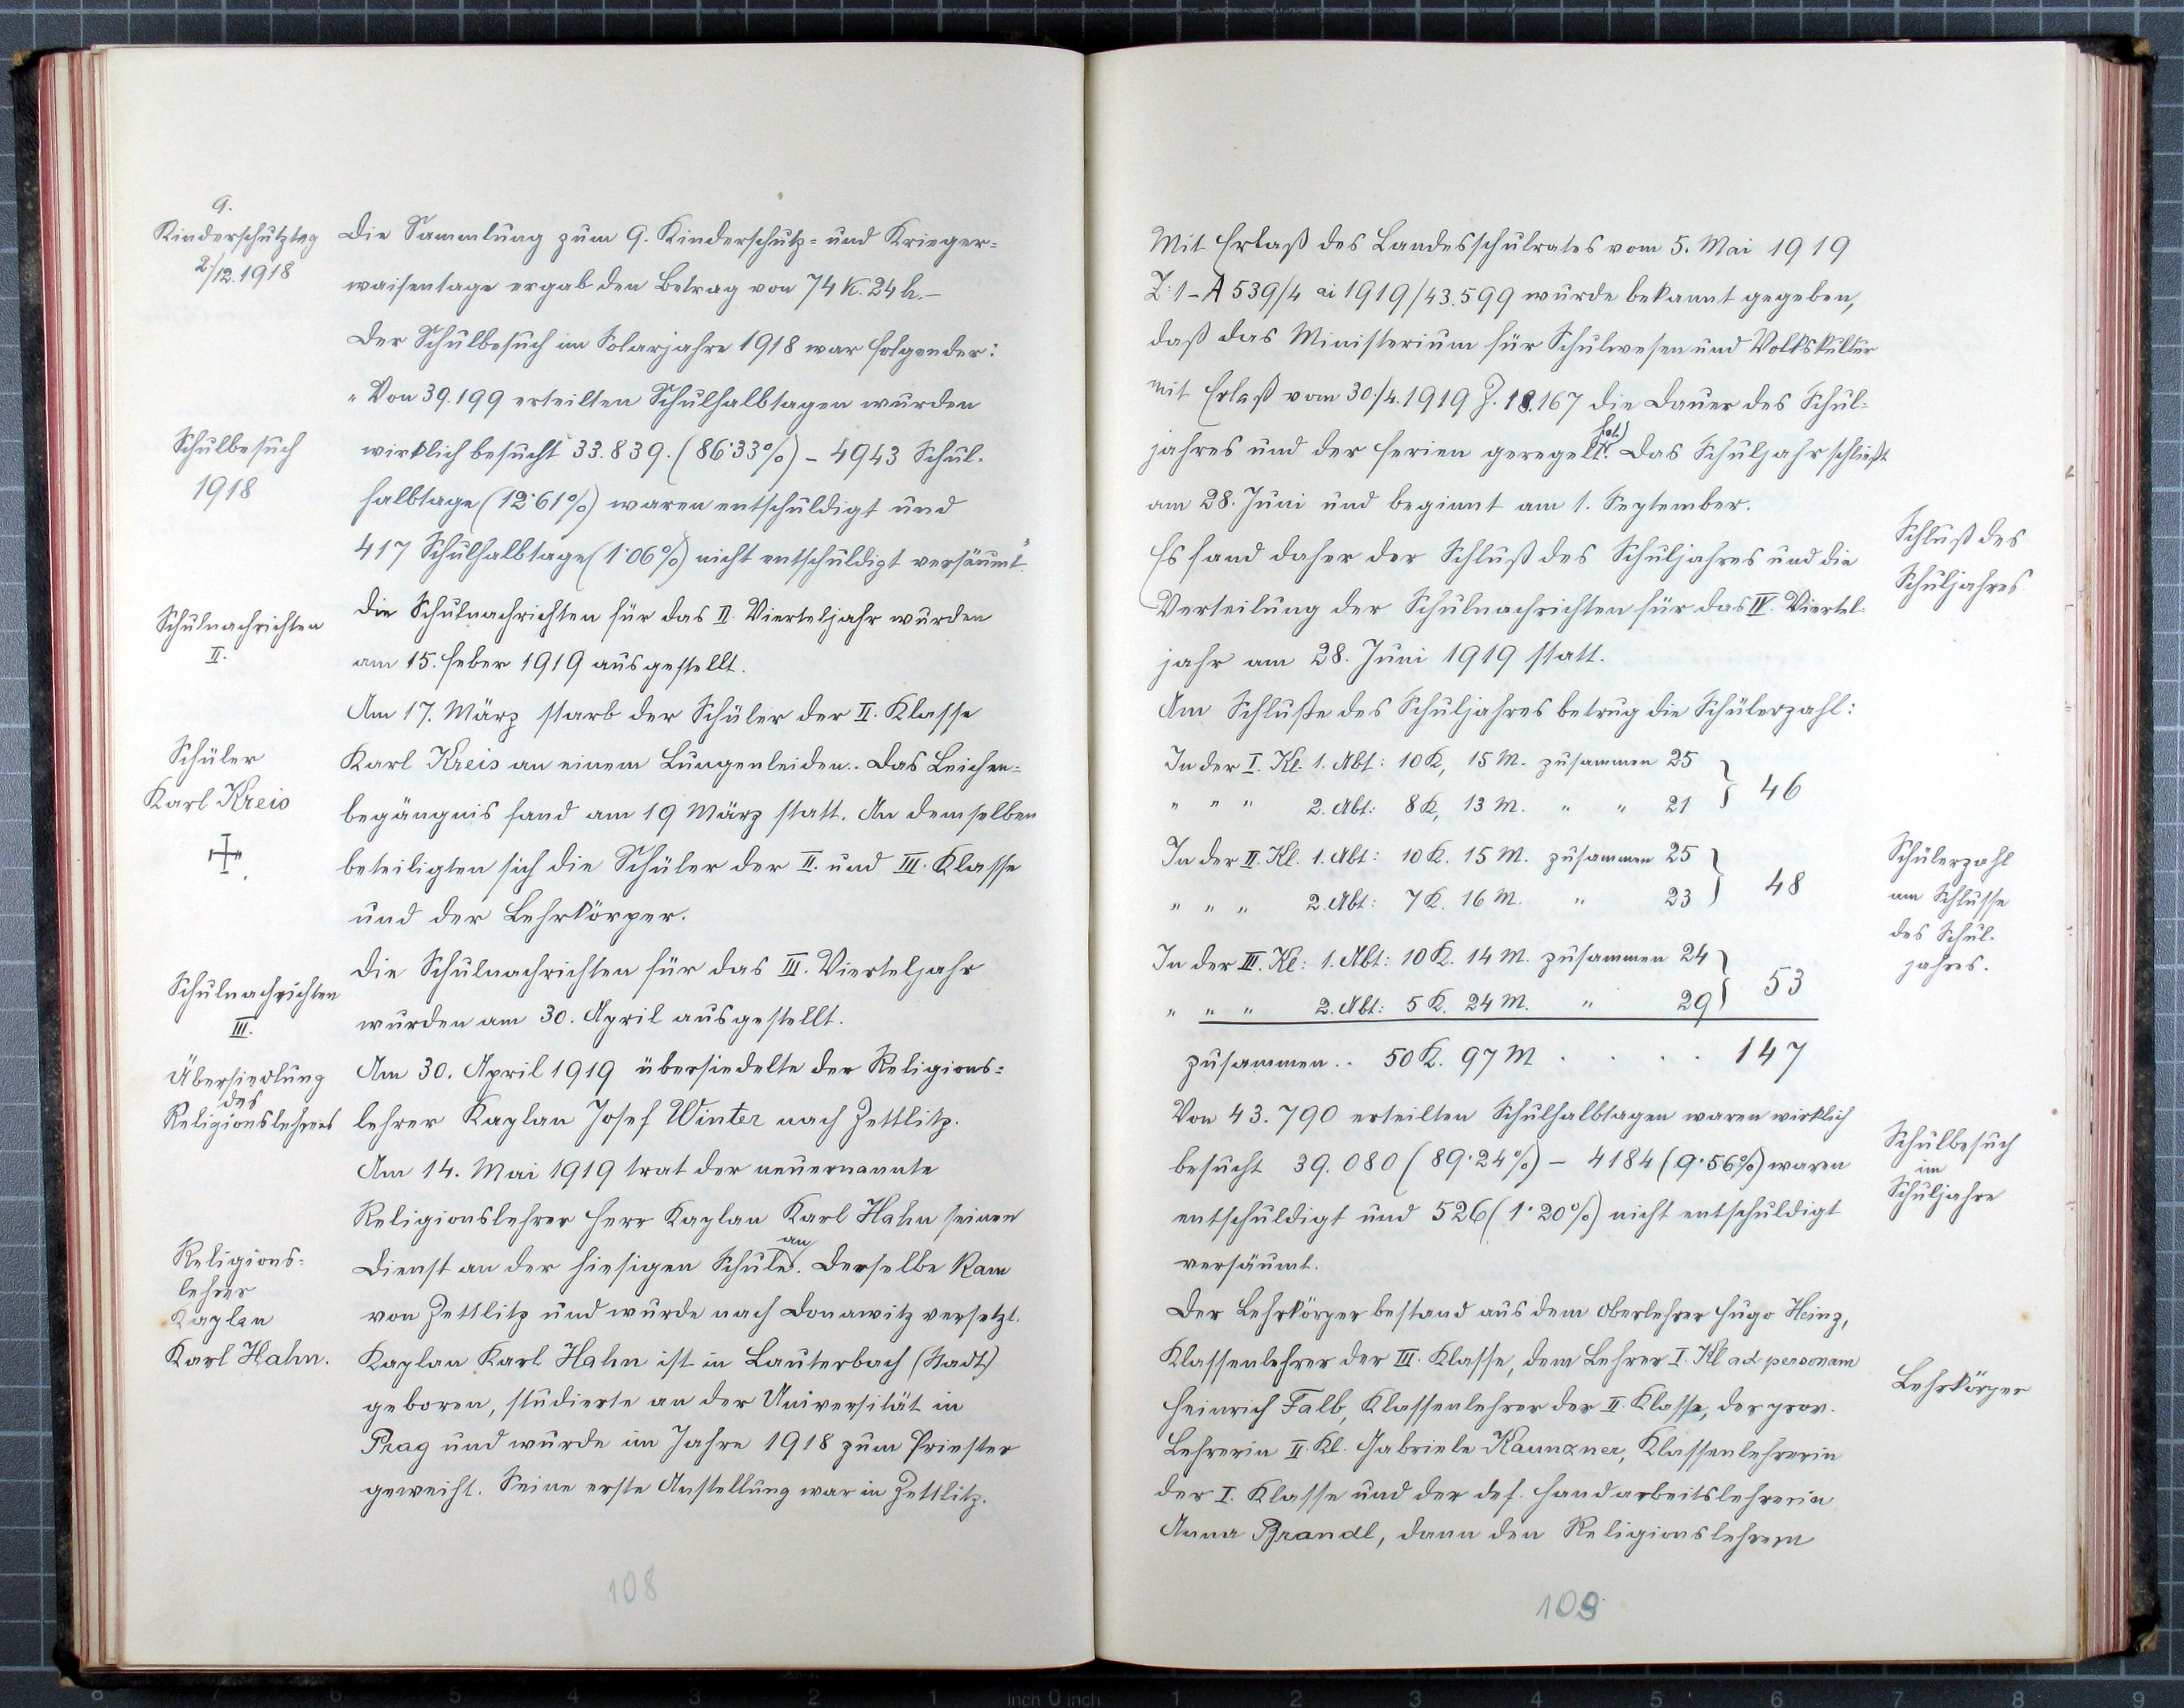 9.
Kinderschutztag
2./12.1918
Die Sammlung zum 9. Kinderschutz- und Krieger-
waisentage ergab den Betrag von 74 K. 24 h.-
Der Schulbesuch im Solarjahre 1918 war folgender:
"Von 39.199 erteilten Schulhalbtagen wurden
Schulbesuch
1918
wirklich besucht 33.839. (86·33%) - 4943 Schul-
halbtage (12·61%) waren entschuldigt und
417 Schulhalbtage (1·06%) nicht entschuldigt versäumt."
Schulnachrichten
II.
Die Schulnachrichten für das II. Vierteljahr wurden
am 15. Feber 1919 ausgestellt.
Am 17. März starb der Schüler der II. Klasse
Schüler
Karl Kreis
Karl Kreis an einem Lungenleiden. Das Leichen-
begängnis fand am 19 März statt. An demselben
beteiligten sich die Schüler der II. und III. Klasse
und der Lehrkörper.
Schulnachrichten
III.
Die Schulnachrichten für das III. Vierteljahr
wurden am 30. April ausgestellt.
Übersiedlung
des
Religionslehrers
Am 30. April 1919 übersiedelte der Religions-
lehrer Kaplan Josef Winter nach Zettlitz.
Am 14. Mai 1919 trat der neuernannte
Religionslehrer Herr Kaplan Karl Hahn seinen
Religions-
lehrer
Kaplan
Karl Hahn.
Dienst an der hiesigen Schule an. Derselbe kam
von Zettlitz und wurde nach Donawitz versetzt.
Kaplan Karl Hahn ist in Lauterbach (Stadt)
geboren, studierte an der Universität in
Prag und wurde im Jahre 1918 zum Priester
geweiht. Seine erste Anstellung war in Zettlitz.
108
Mit Erlaß des Landesschulrates vom 5. Mai 1919
Z: 1-A 539/4 ai 1919/43.599 wurde bekannt gegeben,
daß das Ministerium für Schulwesen und Volkskultur
mit Erlaß vom 30./4.1919 Z. 18.167 die Dauer des Schul-
jahres und der Ferien geregelt hat. Das Schuljahr schließt
am 28. Juni und beginnt am 1. September.
Schluß des
Schuljahres
Es fand daher der Schluß des Schuljahres und die
Verteilung der Schulnachrichten für das IV. Viertel-
jahr am 28. Juni 1919 statt.
Am Schluße des Schuljahres betrug die Schülerzahl:
In der I. Kl. 1. Abt: 10 K, 15 M. zusammen 25
" " " 2. Abt: 8 K, 13 M. " " 21 } 46
In der II. Kl. 1. Abt: 10 K. 15 M. zusammen 25
" " " 2. Abt: 7 K. 16 M. " 23 } 48
In der III. Kl: 1. Abt: 10 K. 14 M. zusammen 24
" " " 2. Abt: 5 K. 24 M. " 29 } 53
Schülerzahl
am Schlusse
des Schul-
jahres.
zusammen .. 50 K. 97 M . . . . 147
Von 43.790 erteilten Schulhalbtagen waren wirklich
Schulbesuch
im
Schuljahre
besucht 39.080 (89·24%) - 4184 (9·56%) waren
entschuldigt und 526 (1·20%) nicht entschuldigt
versäumt.
Der Lehrkörper bestand aus dem Oberlehrer Hugo Heinz,
Klassenlehrer der III. Klasse, dem Lehrer I. Kl ad personam
Lehrkörper
Heinrich Falb, Klassenlehrer der II. Klasse, der prov.
Lehrerin II. Kl. Gabriele Kaunzner, Klassenlehrerin
der I. Klasse und der def. Handarbeitslehrerin
Anna Brandl, dann den Religionslehrern
109
8 7 6 5 4 3 2 1 inch 0 inch 1 2 3 4 5 6 7 8 9